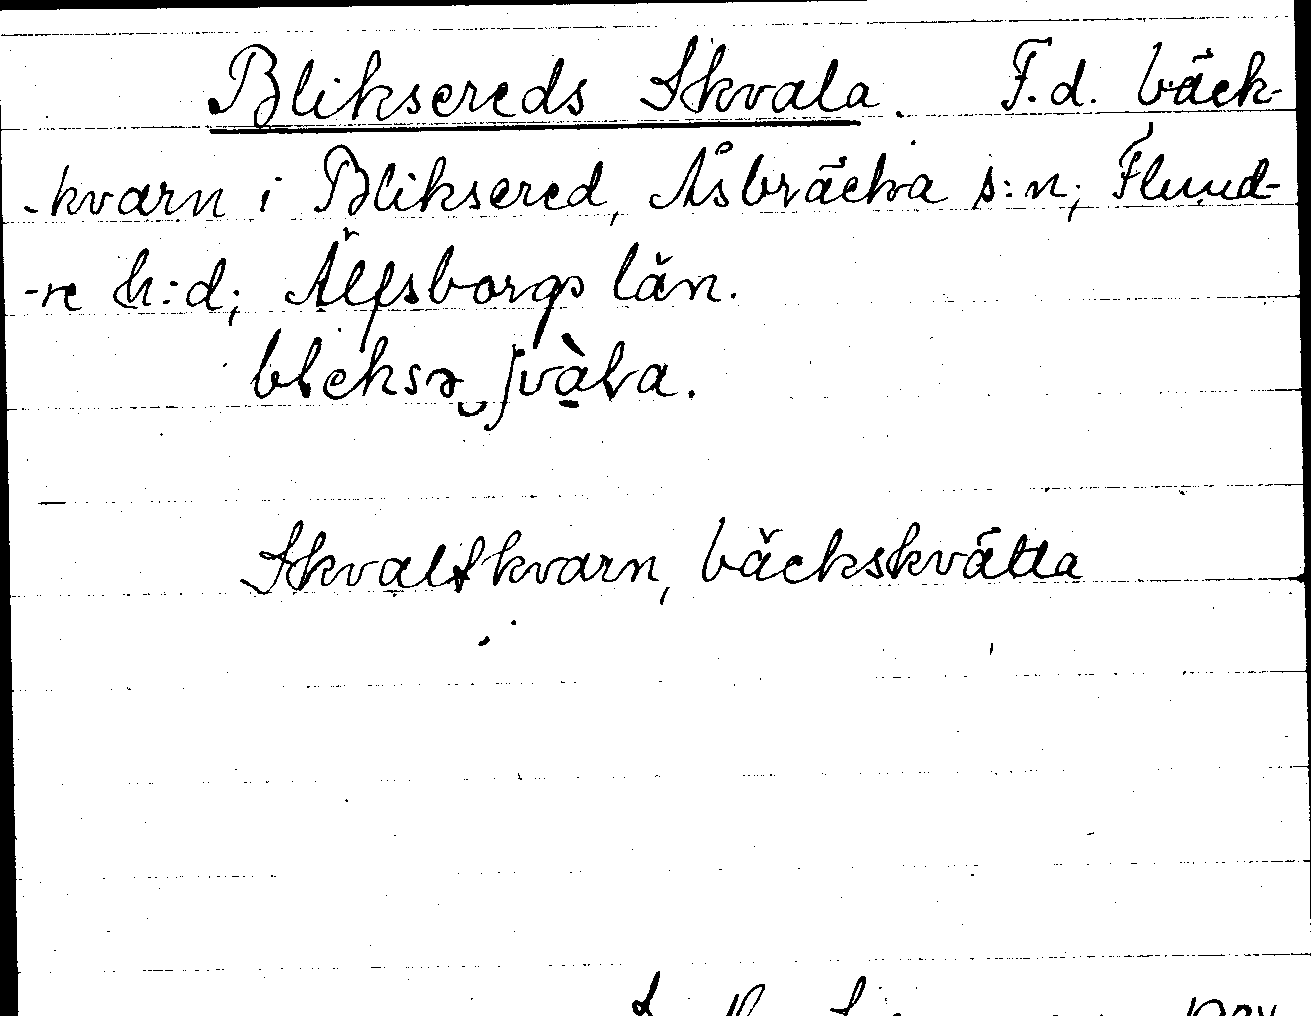 Bliksereds Skvala. F.d. bäck-
-kvarn i Bliksered, Åsbräcka s:n; Flund-
-re h:d; Älfsborgs län.
bleksə‿ʃvàla.
Skvaltkvarn, bäckskvätta